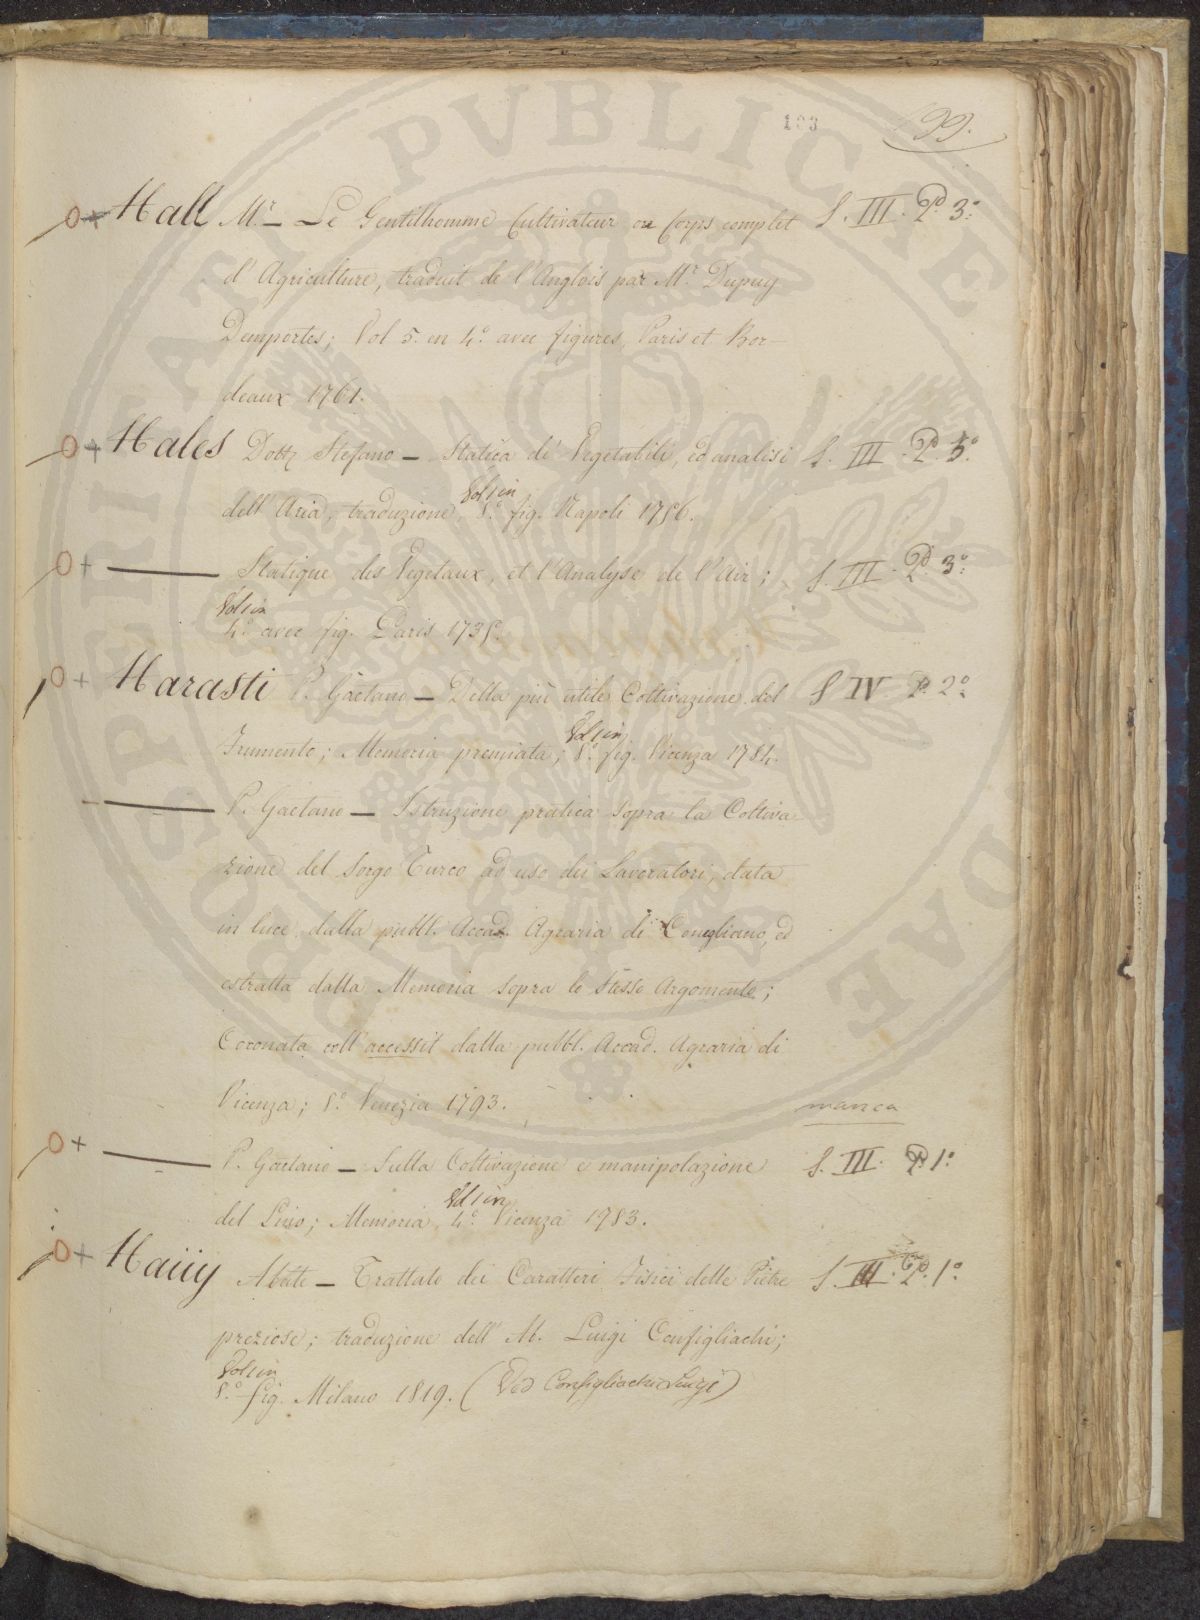 PROSPERITATI PVBLICAE ADAVGENDAE
103
99.
Hall M.r — Le Gentilhomme Cultivateur ou Corps complet S. III. P.o 3.o
d'Agriculture, traduit de l'Anglois par M.r Dupuy
Demportes; Vol 5. en 4.o avec figures, Paris et Bor-
deaux 1761.
Hales Dott.r Stefano — Statica de' Vegetabili, ed analisi S. III. P.o 5.o
dell'Aria, traduzione, Vol 1 in 8.o fig. Napoli 1756.
— Statique des Vegetaux, et l'Analyse de l'Air; S. III. P.o 3.o
Vol 1 in
4.o avec fig. Paris 1735.
Harasti P. Gaetano — Della più utile Coltivazione del S IV P. 2.o
Frumento; Memoria premiata; Vol 1 in 8.o fig. Vicenza 1784.
— P. Gaetano — Istruzione pratica sopra la Coltiva-
zione del Sorgo Turco ad uso dei Lavoratori, data
in luce dalla pubbl. Accad. Agraria di Conegliano, ed
estratta dalla Memoria sopra lo stesso Argomento;
Coronata coll'accessit dalla pubbl. Accad. Agraria di
Vicenza; 8.o Venezia 1793. manca
— P. Gaetano — Sulla Coltivazione e manipolazione S. III. P. 1.o
del Lino; Memoria, Vol 1 in 4.o Vicenza 1783.
Haüy Abate — Trattato dei Caratteri Fisici delle Pietre S. III. P.o 1.o
preziose; traduzione dell'Ab. Luigi Configliachi;
Vol 1 in
8.o fig. Milano 1819. (Ved Configliachi Luigi)